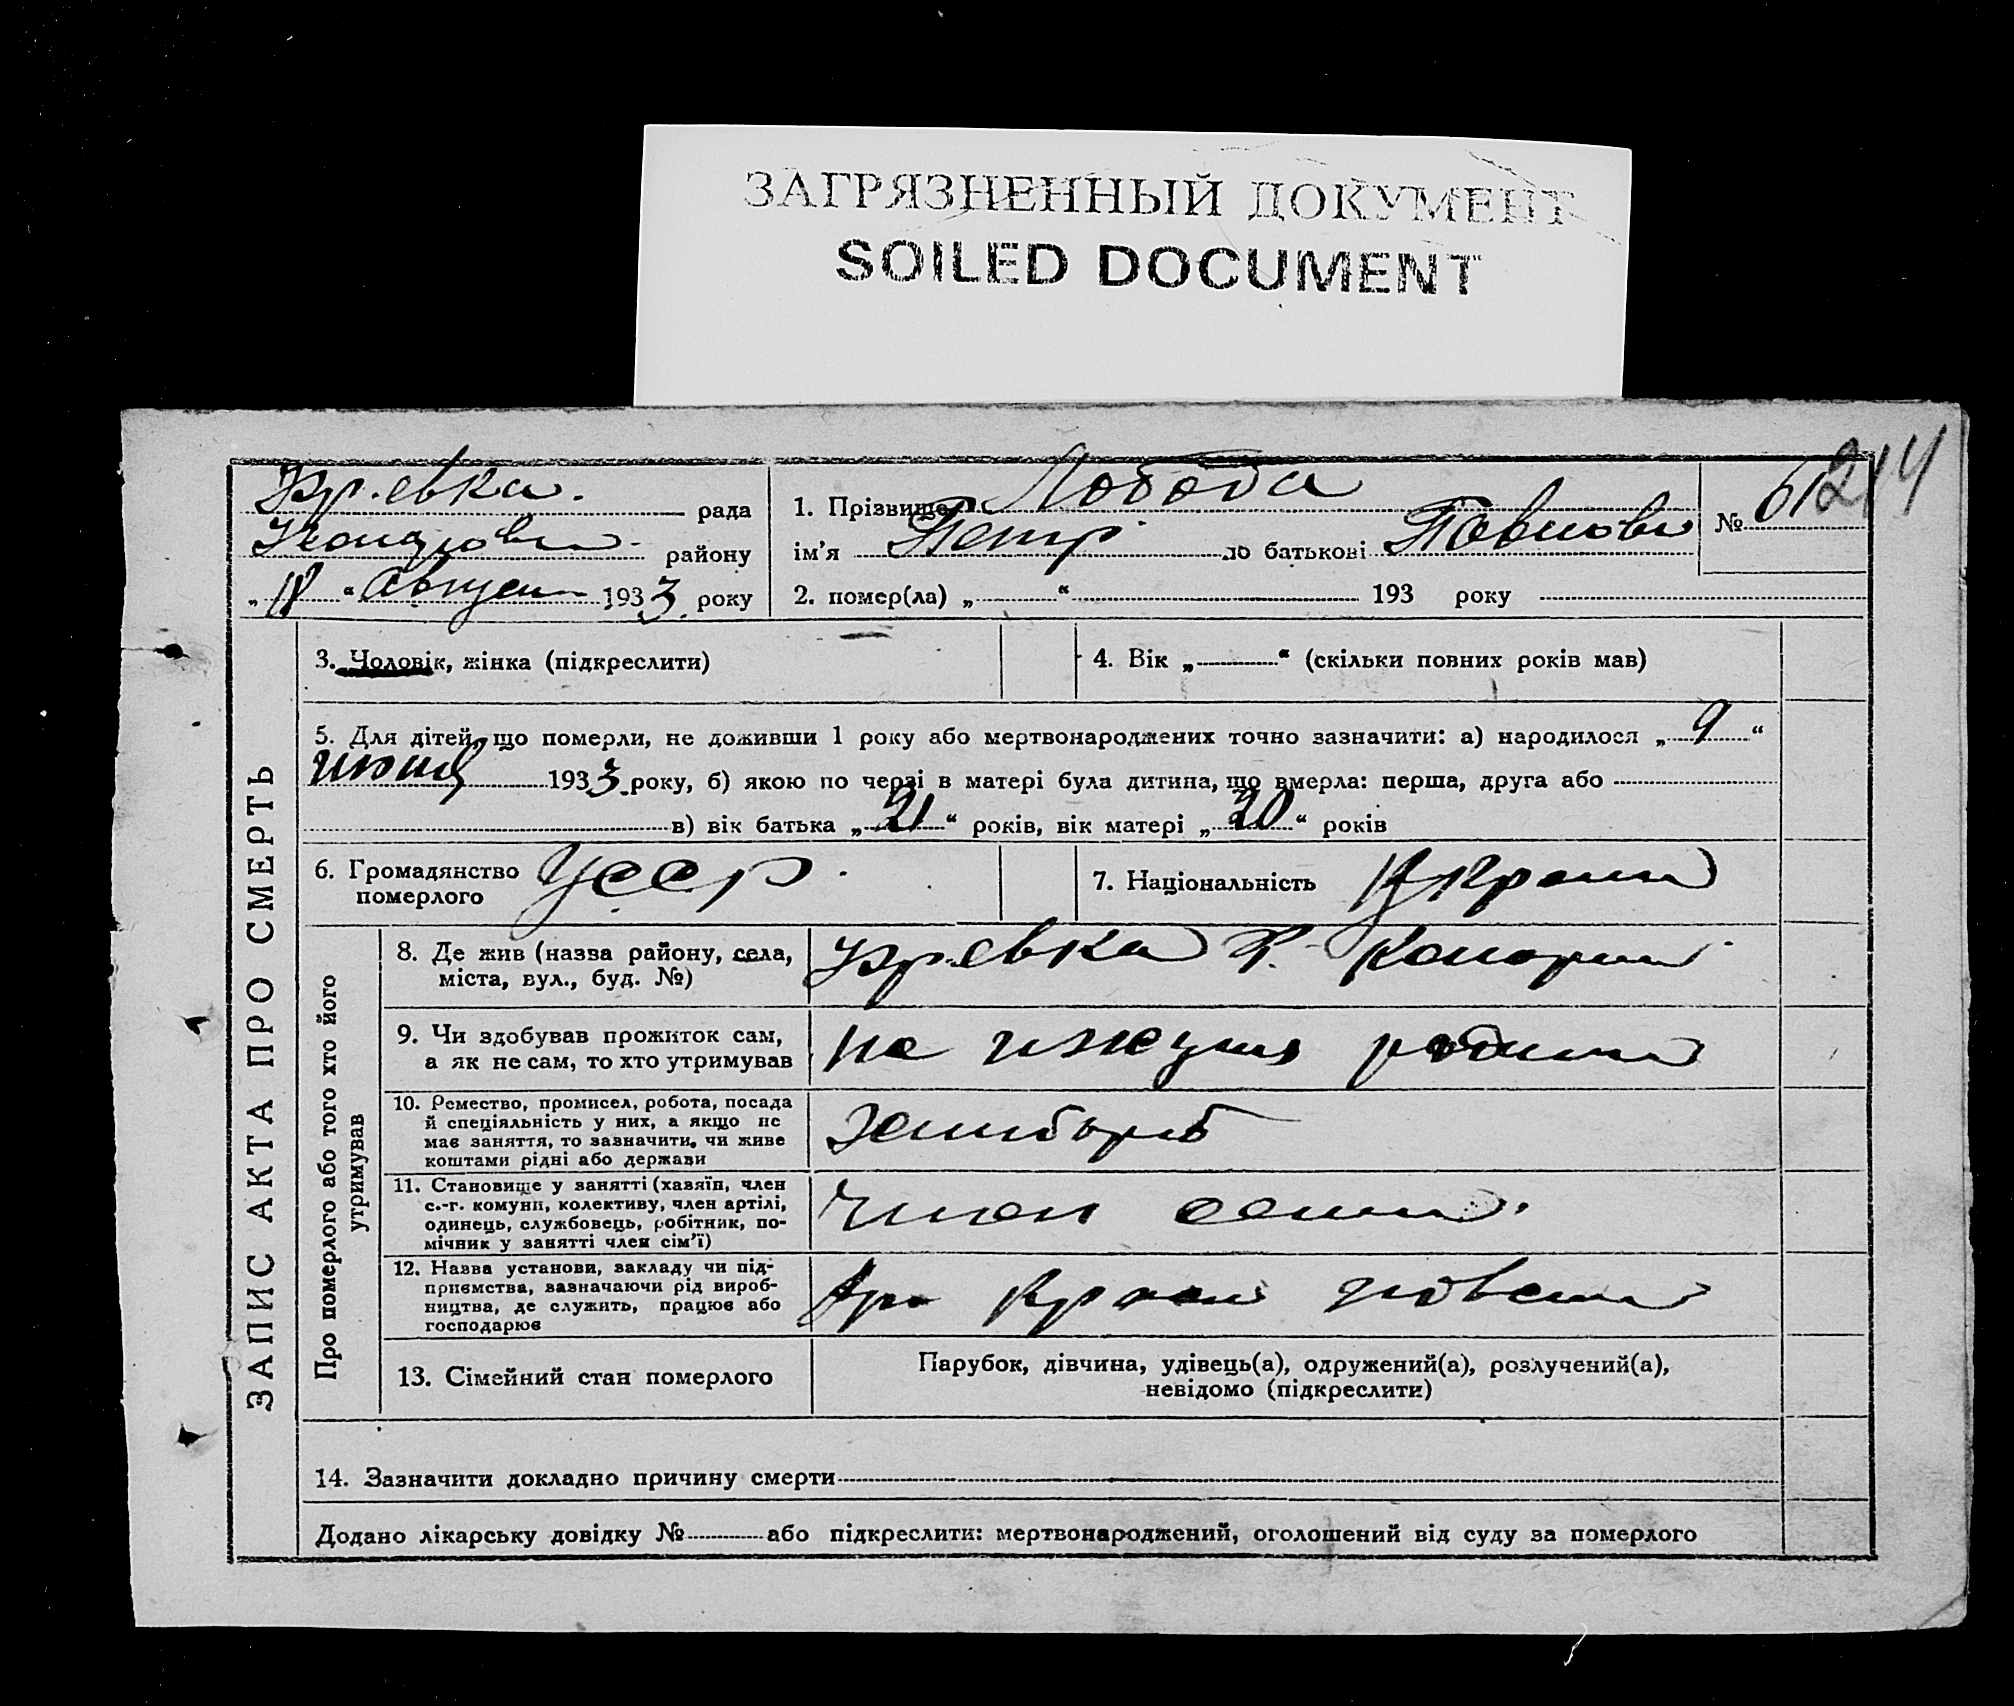 ЗАГРЯЗНЕННЫЙ ДОКУМЕНТ
SOILED DOCUMENT
рада
району
„ “ 1933 року
1. Прізвище Лобода
ім’я Петр по батькові
№ 61 214
2. помер(ла) „ “ 193 року
ЗАПИС АКТА ПРО СМЕРТЬ
3. Чоловік, жінка (підкреслити)
4. Вік „ “ (скільки повних років мав)
5. Для дітей, що померли, не доживши 1 року або мертвонароджених точно зазначити: а) народилося „ 9 “
июня 1933 року, б) якою по черзі в матері була дитина, що вмерла: перша, друга або
в) вік батька „ 21 “ років, вік матері „ 20 “ років
6. Громадянство
померлого
Усср
7. Національність
Про померлого або того хто його
утримував
8. Де жив (назва району, села,
міста, вул., буд. №)
9. Чи здобував прожиток сам,
а як не сам, то хто утримував
10. Ремество, промисел, робота, посада
й спеціяльність у них, а якщо не
має заняття, то зазначити, чи живе
коштами рідні або держави
11. Становище у занятті (хазяїн, член
с.-г. комуни, колективу, член артілі,
одинець, службовець, робітник, по-
мічник у занятті член сім’ї)
член
12. Назва установи, закладу чи під-
приємства, зазначаючи рід вироб-
ництва, де служить, працює або
господарює
13. Сімейний стан померлого
Парубок, дівчина, удівець(а), одружений(а), розлучений(а),
невідомо (підкреслити)
14. Зазначити докладно причину смерти
Додано лікарську довідку № або підкреслити: мертвонароджений, оголошений від суду за померлого